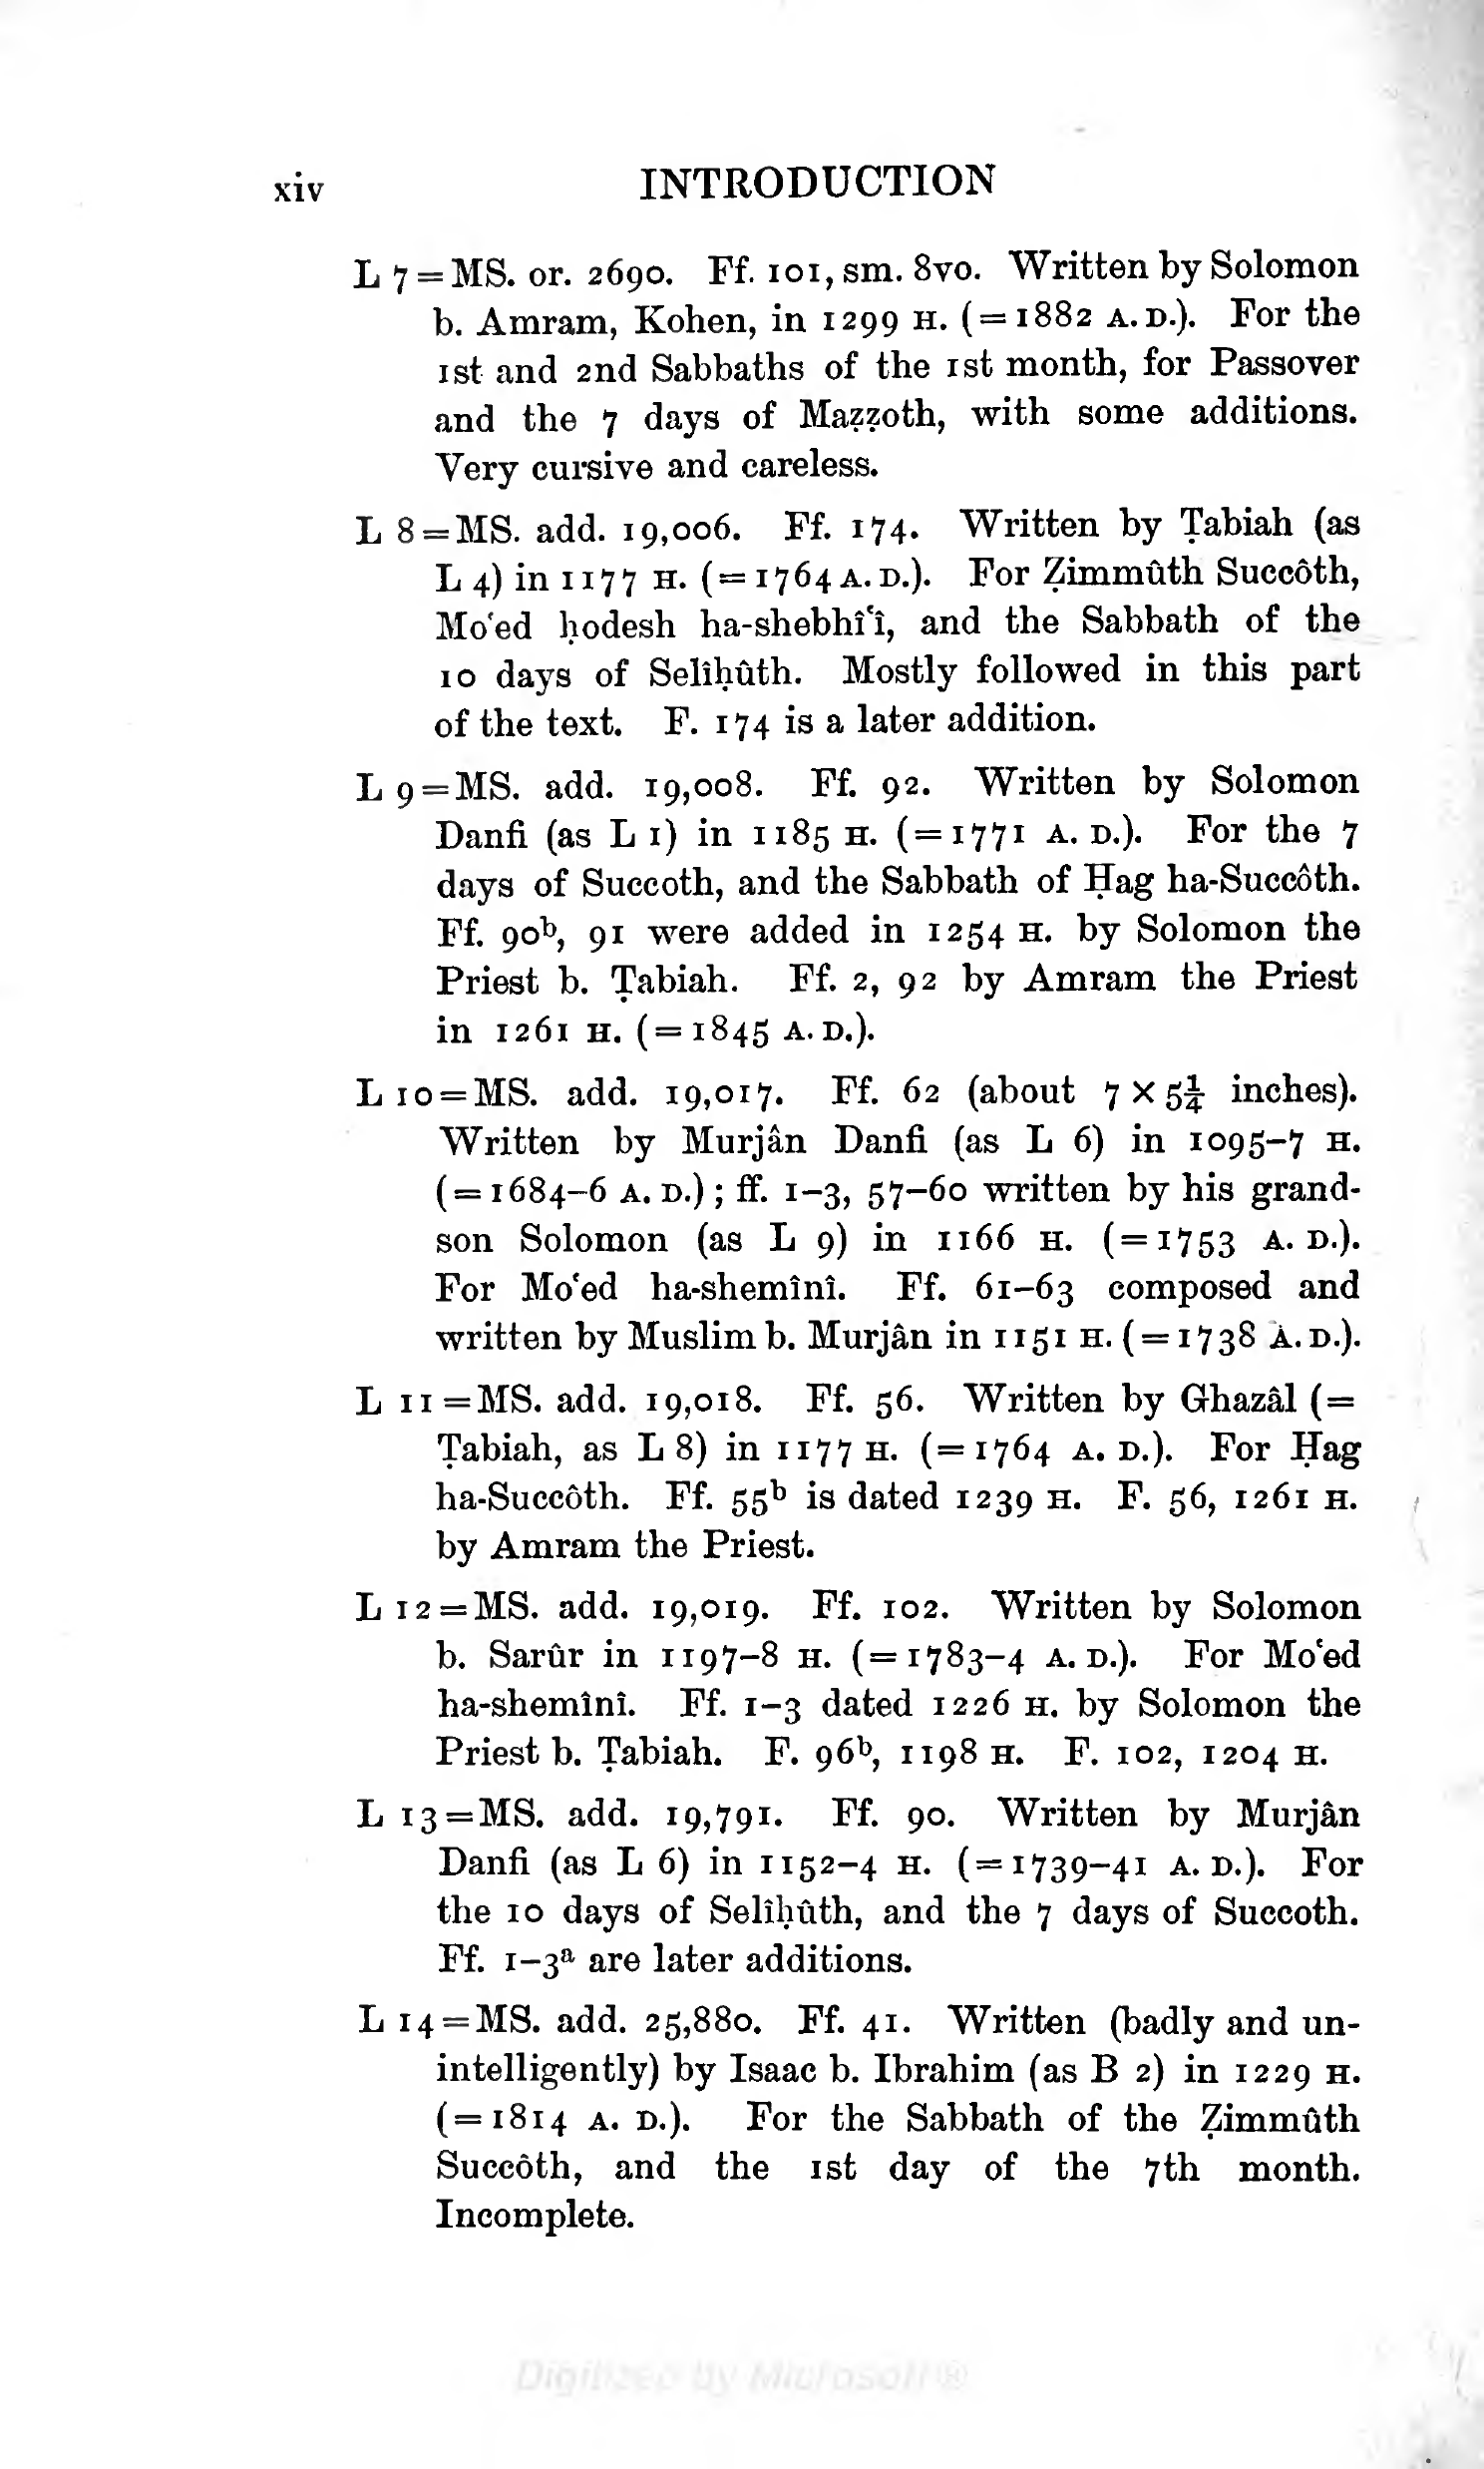 xiv INTRODUCTION
L 7 = MS. or. 2690. Ff. 101, sm. 8vo. Written by Solomon
b. Amram, Kohen, in 1299 H. (= 1882 A.D.). For the
1st and 2nd Sabbaths of the 1st month, for Passover
and the 7 days of Maẓẓoth, with some additions.
Very cursive and careless.
L 8 = MS. add. 19,006. Ff. 174. Written by Ṭabiah (as
L 4) in 1177 H. (= 1764 A.D.). For Ẓimmûth Succôth,
Moʿed ḥodesh ha-shebhîʿî, and the Sabbath of the
10 days of Selîḥûth. Mostly followed in this part
of the text. F. 174 is a later addition.
L 9 = MS. add. 19,008. Ff. 92. Written by Solomon
Danfi (as L 1) in 1185 H. (= 1771 A. D.). For the 7
days of Succoth, and the Sabbath of Ḥag ha-Succôth.
Ff. 90ᵇ, 91 were added in 1254 H. by Solomon the
Priest b. Ṭabiah. Ff. 2, 92 by Amram the Priest
in 1261 H. (= 1845 A.D.).
L 10 = MS. add. 19,017. Ff. 62 (about 7 × 5¼ inches).
Written by Murjân Danfi (as L 6) in 1095–7 H.
(= 1684–6 A. D.); ff. 1–3, 57–60 written by his grand-
son Solomon (as L 9) in 1166 H. (= 1753 A. D.).
For Moʿed ha-shemînî. Ff. 61–63 composed and
written by Muslim b. Murjân in 1151 H. (= 1738 A.D.).
L 11 = MS. add. 19,018. Ff. 56. Written by Ghazâl (=
Ṭabiah, as L 8) in 1177 H. (= 1764 A. D.). For Ḥag
ha-Succôth. Ff. 55ᵇ is dated 1239 H. F. 56, 1261 H.
by Amram the Priest.
L 12 = MS. add. 19,019. Ff. 102. Written by Solomon
b. Sarûr in 1197–8 H. (= 1783–4 A. D.). For Moʿed
ha-shemînî. Ff. 1–3 dated 1226 H. by Solomon the
Priest b. Ṭabiah. F. 96ᵇ, 1198 H. F. 102, 1204 H.
L 13 = MS. add. 19,791. Ff. 90. Written by Murjân
Danfi (as L 6) in 1152–4 H. (= 1739–41 A. D.). For
the 10 days of Selîḥûth, and the 7 days of Succoth.
Ff. 1–3ᵃ are later additions.
L 14 = MS. add. 25,880. Ff. 41. Written (badly and un-
intelligently) by Isaac b. Ibrahim (as B 2) in 1229 H.
(= 1814 A. D.). For the Sabbath of the Ẓimmûth
Succôth, and the 1st day of the 7th month.
Incomplete.
Digitized by Microsoft®